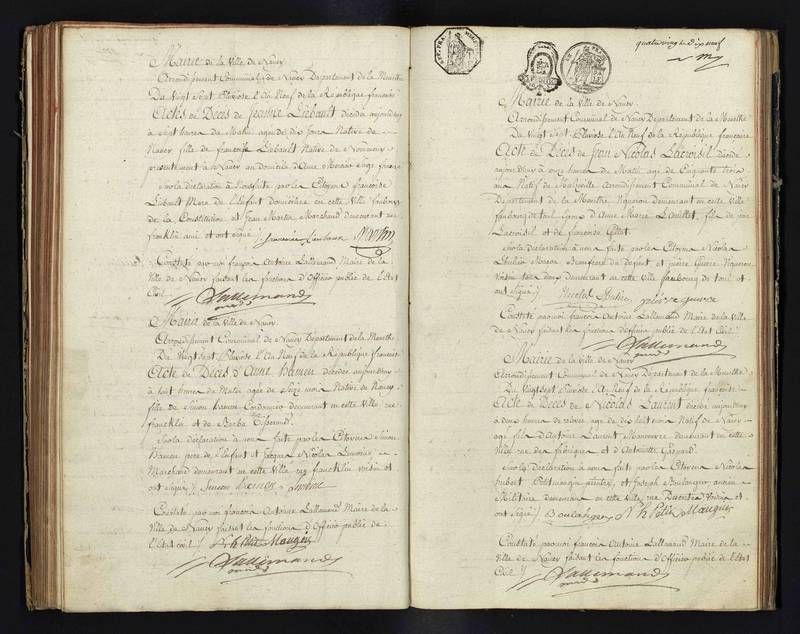 Mairie de la Ville de Nancy
Arrondissement Communal de Nancy Departement de la Meurthe
Du Vingt Sept Pluviose l'An Neuf de la République française
Acte de Deces de Jeanne Liebault décédée aujourdhuy
à Sept heures du Matin agée de dix jours Native de
Nancy, fille de françoise Liebault Native de
à Nancy
sur la déclaration à Nous faite par la Citoyenne françoise
Liebault Mere de l'Enfant domiciliée en cette Ville faubourg
de la Constitution et Jean Martin Marchand demeurant rue
franklin ami et ont signé
Martin
Constaté par moi françois Antoine Lallemand Maire de la
Ville de Nancy faisant les fonctions d'Officier public de l'Etat
Civil
Lallemand
Mairie de la Ville de Nancy
Arrondissement Communal de Nancy Departement de la Meurthe
Du Vingt Sept Pluviose l'An Neuf de la République française
Acte de Deces d'Anne décédée aujourdhuy
à huit heures du Matin agée de Seize mois Native de Nancy
fille de Simon Cordonnier demeurant en cette Ville rue
francklin et de Barbe
Sur la déclaration à nous faite par le Citoyen Simon
pere de l'Enfant et Jacques Nicolas
Marchand demeurant en cette Ville rue francklin voisin et
ont signé
Constaté par moi françois Antoine Lallemand Maire de la
Ville de Nancy faisant les fonctions d'Officier public de
l'Etat civil
Lallemand
quatre vingt dix neuf
Mairie de la Ville de Nancy
Arrondissement Communal de Nancy Departement de la Meurthe
Du Vingt Sept Pluviose l'An Neuf de la République francaise
Acte de Deces de Jean Nicolas Lacroisel décédé
aujourdhuy à onze heures du Matin agé de Cinquante trois
ans Natif de Arrondissement Communal de Nancy
Departement de la Meurthe Vigneron demeurant en cette Ville
faubourg de toul Epoux d'Anne Marie fils de feu
Lacroisel et de francoise
sur la déclaration à nous faite par les Citoyens Nicolas
du Defunt et pierre Guerre Vigneron
Voisin tous deux demeurant en cette Ville faubourg de toul et
ont signé
Nicolas pierre guerre
Constaté par moi francois Antoine Lallemand Maire de la Ville
de Nancy faisant les fonctions d'Officier public de l'Etat Civil
Lallemand
Mairie de la Ville de Nancy
Arrondissement Communal de Nancy Departement de la Meurthe
Du Vingt Sept Pluviose l'An Neuf de la République francaise
Acte de Deces de Nicolas Laurent décédé aujourdhuy
à deux heures de relevée agé de dix huit mois Natif de Nancy
fils d'Antoine Laurent Manoeuvre demeurant en cette
Ville rue des fabriques et d'Antoinette Gaspard
Sur la Déclaration à nous faite par les Citoyens Nicolas
hubert Petitmangin peintre et Joseph Boulanger ancien
Militaire demeurant en cette Ville rue Voisins et
ont signé Boulanger N h Petit Mangin
Constaté par moi francois Antoine Lallemand Maire de la
Ville de Nancy faisant les fonctions d'Officier public de l'Etat
Civil
Lallemand